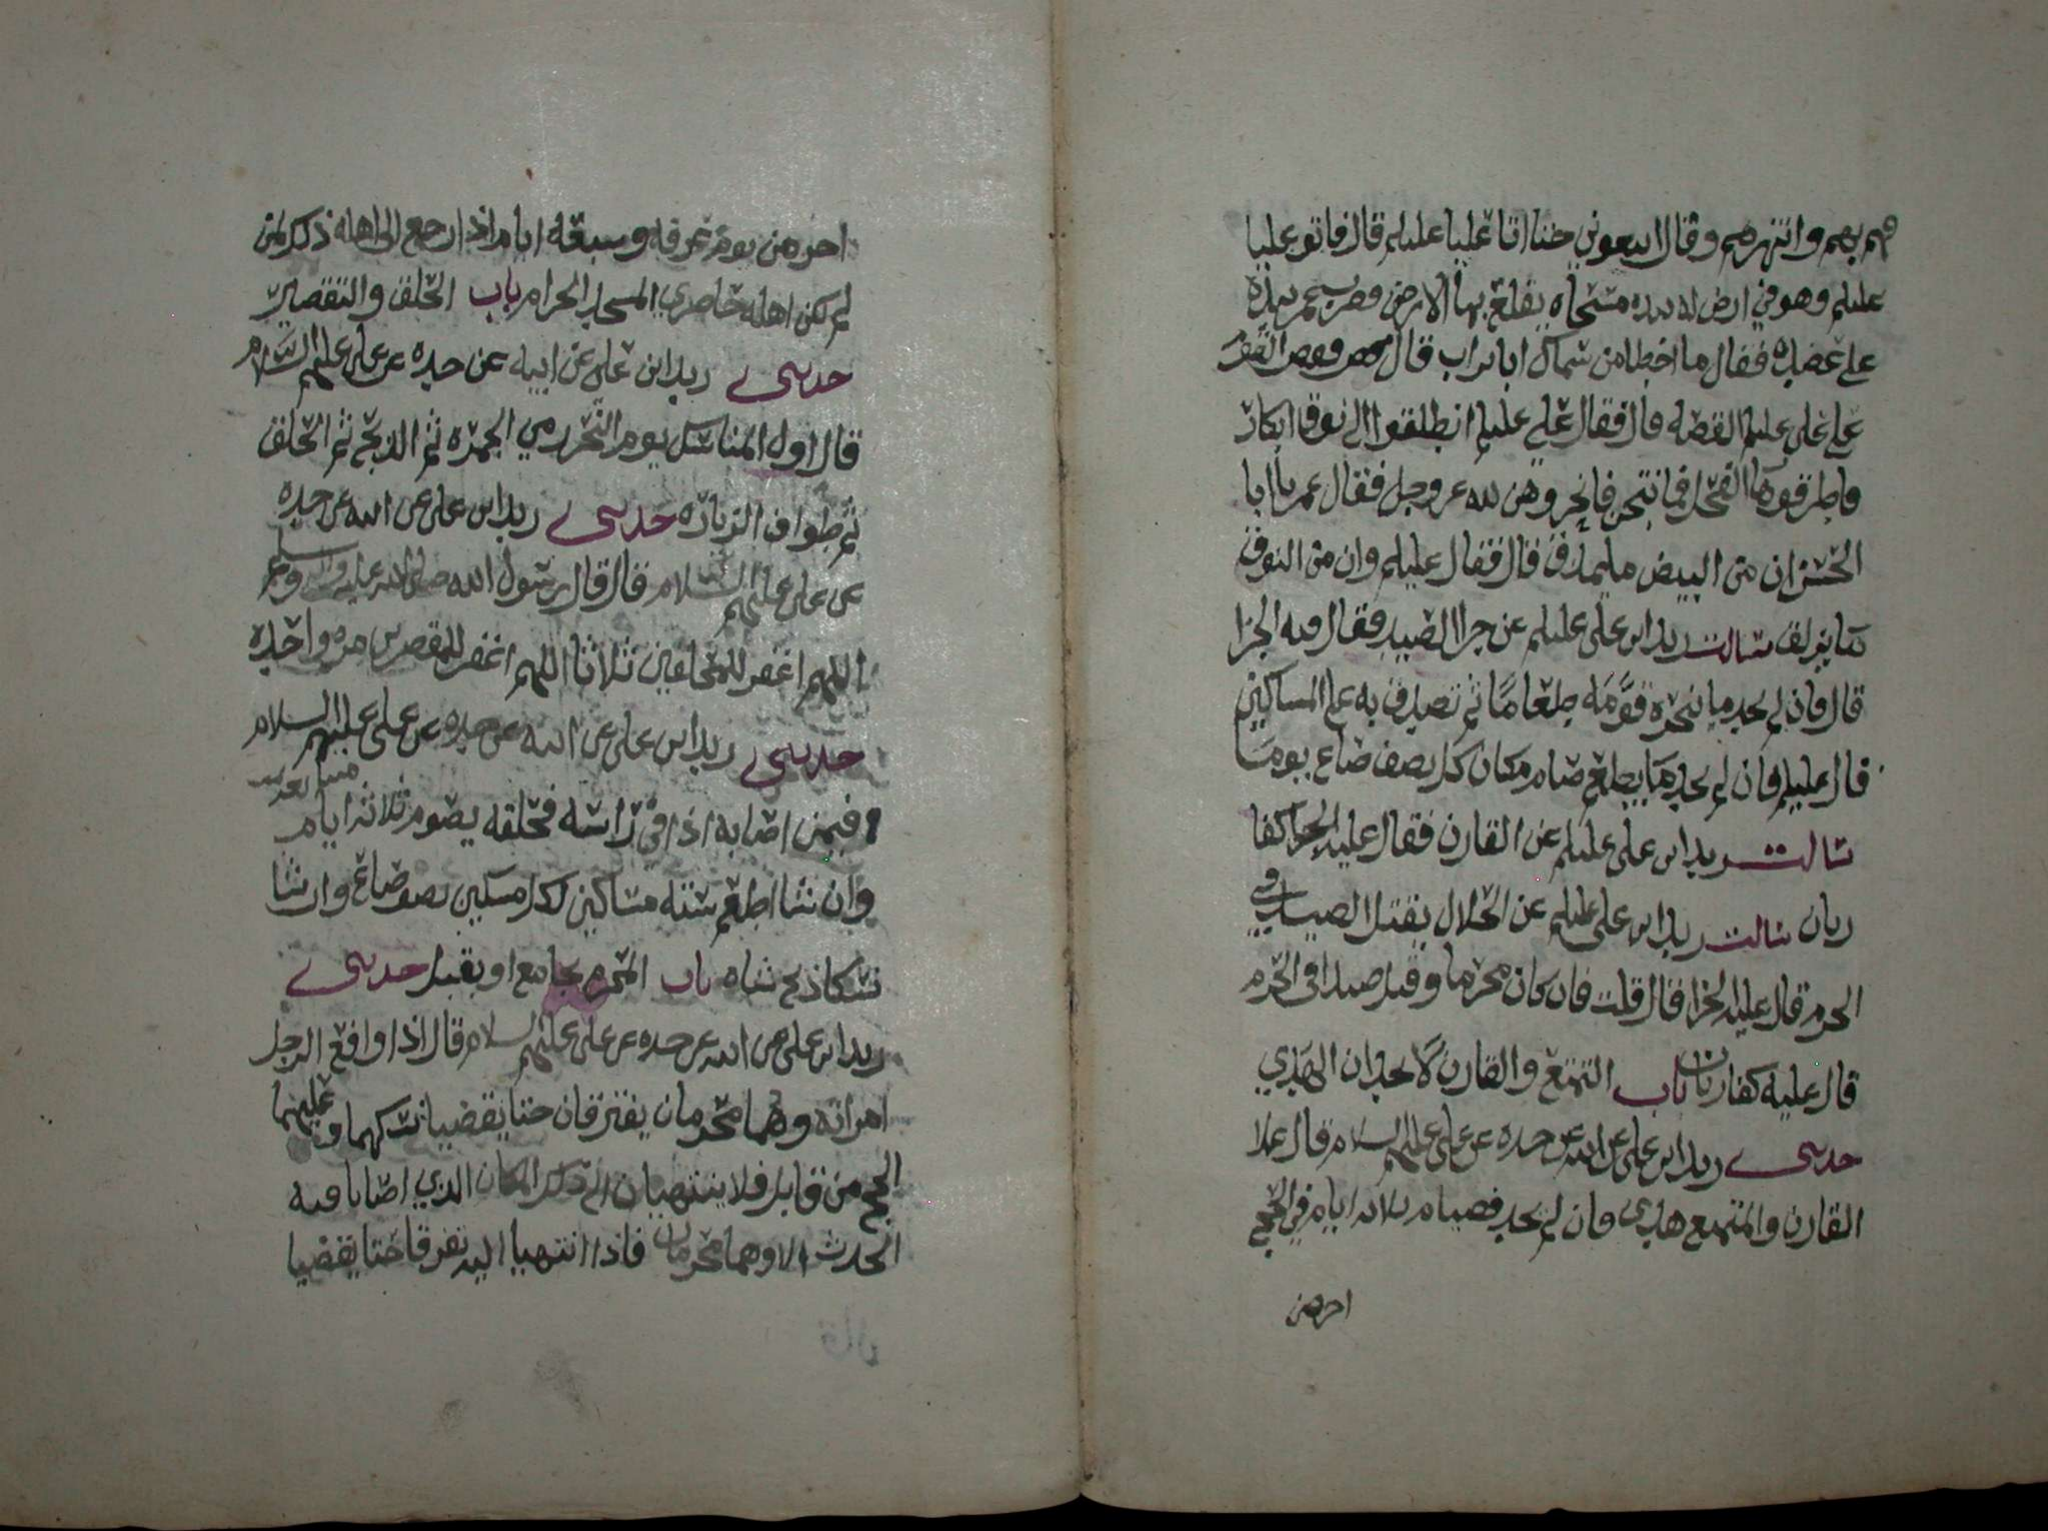 فهم بهم وانتهرهم وقال اتبعوني حتا اتا عليا عليلم قال فاتو عليا
عليلم وهو في ارض له بيده مسحاه يقلع بها الارض فضرب عمر بيده
على عضده فقال ما اخطا من سماك ابا تراب قال فقص القوم
على علي عليلم القصه قال فقال علي عليلم انطلقوا الى نوق ابكار
فاطرقوها الفحل فما نتجن فانحروهن لله عز وجل فقال عمر يا ابا
الحسن ان من البيض ما يمذق قال فقال عليلم وان من النوق
ما يزلق سالت زيد ابن على عليلم عن جزا الصيد فقال فيه الجزا
قال فان لم يجد ما ينحره قومه طعاما ثم تصدق به على المساكين
قال عليلم فان لم يجد ما يطعم صام مكان كل نصف صاع يوما
سالت زيد ابن على عليلم عن القارن فقال عليه الجزا كفا
رتان سالت زيد ابن على عليلم عن الحلال يقتل الصيد في
الحرم قال عليه الجزا قال قلت فان كان محرما وقتل صيدا في الحرم
قال عليه كفارتان باب التمتع والقارن لا يجدان الهدي
حدثني زيد ابن على عن ابيه عن جده عن على عليهم السلام قال علا
القارن والمتمتع هدي فان لم يجد فصيام ثلاثه ايام في الحج
اخرهن
اخرهن يوم عرفه وسبعه ايام اذا رجع الى اهله ذلك لمن
لم يكن اهله حاضري المسجد الحرام باب الحلق والتقصير
حدثني زيد ابن علي عن ابيه عن جده عن على عليهم السلام
قال اول المناسك يوم النحر رمي الجمره ثم الذبح ثم الحلق
ثم طواف الزياره حدثني زيد ابن على عن ابيه عن جده
عن على عليهم السلام قال قال رسول الله صلى الله عليه واله وسلم
اللهم اغفر للمحلقين ثلاثا اللهم اغفر للمقصرين مره واحده
حدثني زيد ابن على عن ابيه عن جده عن على عليهم السلام
فيمن اصابه اذا في راسه فحلقه يصوم ثلاثه ايام
وان شا اطعم سته مساكين لكل مسكين نصف صاع وان شا
نسكا ذبح شاه باب المحرم يجامع او يقبل حدثني
زيد ابن على عن ابيه عن جده عن على عليهم السلام قال اذا واقع الرجل
امراته وهما محرمان يفترقان حتا يقضيا نسكهما وعليهما
الحج من قابل فلا ينتهيان الى ذلك المكان الذي اصابا فيه
الحدث الا وهما محرمان فاذا انتهيا اليه تفرقا حتا يقضيا